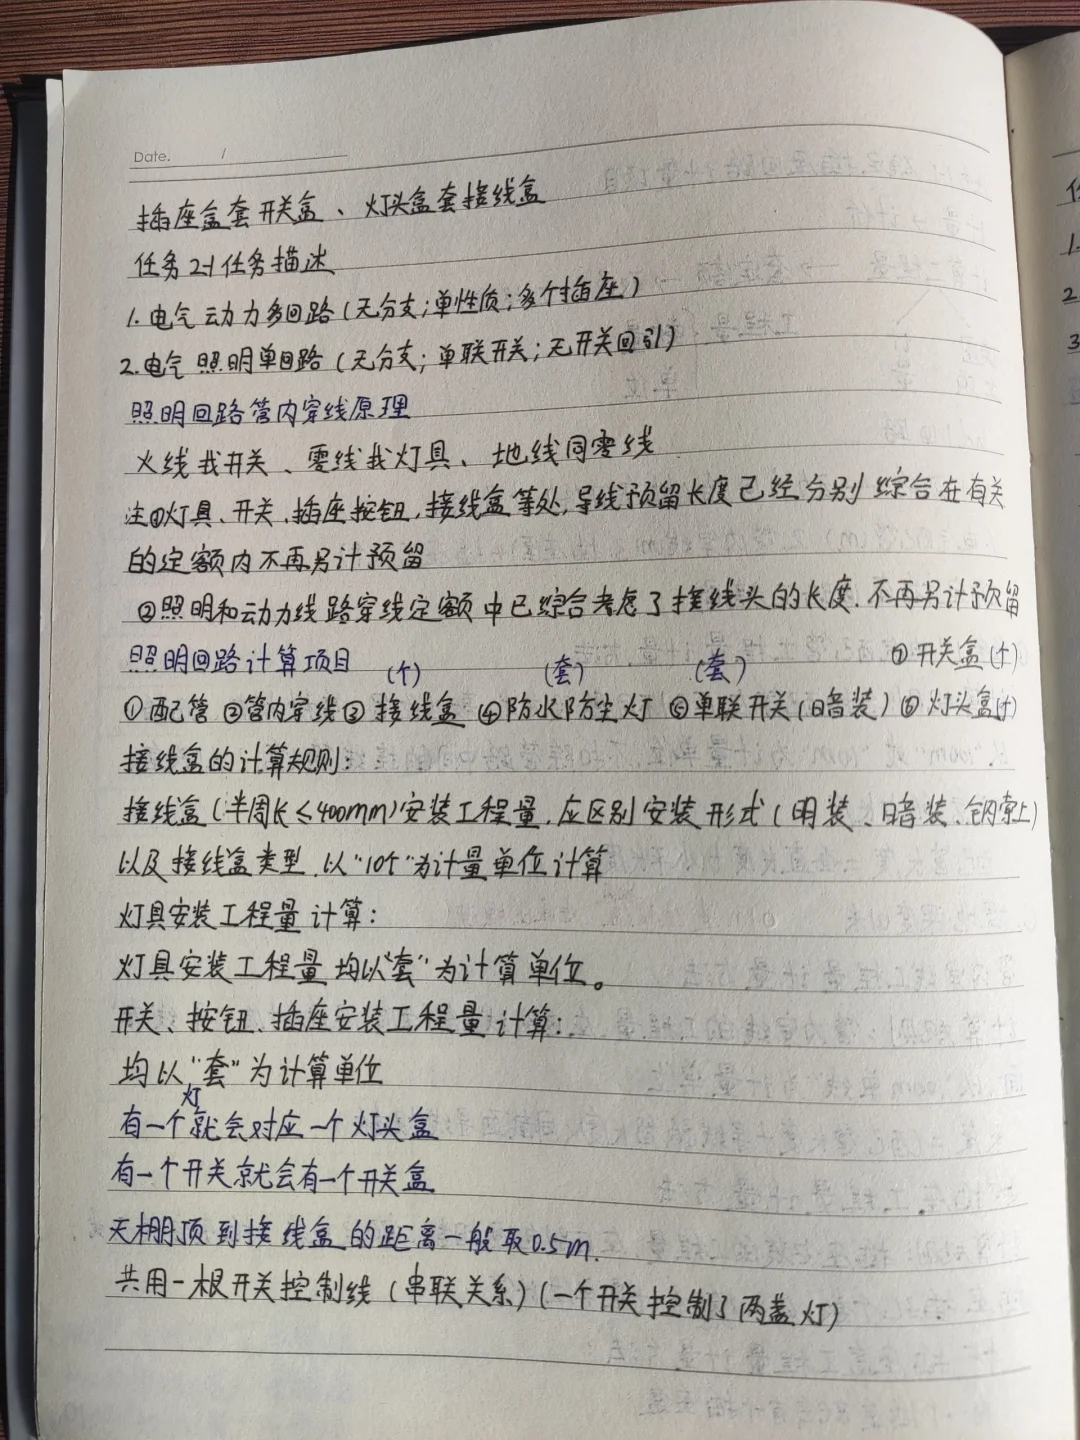 Date. /
插座盒套开关盒、灯头盒套接线盒
任务2-1任务描述
1.电气动力多回路(无分支;单性质;多个插座)
2.电气照明单回路(无分支;单联开关;无开关回引)
照明回路管内穿线原理
火线找开关、零线找灯具、地线同零线
注①灯具、开关、插座按钮,接线盒等处,导线预留长度已经分别综合在有关
的定额内不再另计预留
②照明和动力线路穿线定额中已综合考虑了接线头的长度.不再另计预留
照明回路计算项目 (个) (套) (套) ⑦开关盒(个)
①配管②管内穿线③接线盒④防水防尘灯⑤单联开关(暗装)⑥灯头盒(个)
接线盒的计算规则:
接线盒(半周长≤400mm)安装工程量.应区别安装形式(明装、暗装、钢索上)
以及接线盒类型.以"10个"为计量单位计算
灯具安装工程量计算:
灯具安装工程量均以"套"为计算单位。
开关、按钮、插座安装工程量计算:
均以"套"为计算单位
有一个灯就会对应一个灯头盒
有一个开关就会有一个开关盒
天棚顶到接线盒的距离一般取0.5m.
共用一根开关控制线(串联关系)(一个开关控制了两盏灯)